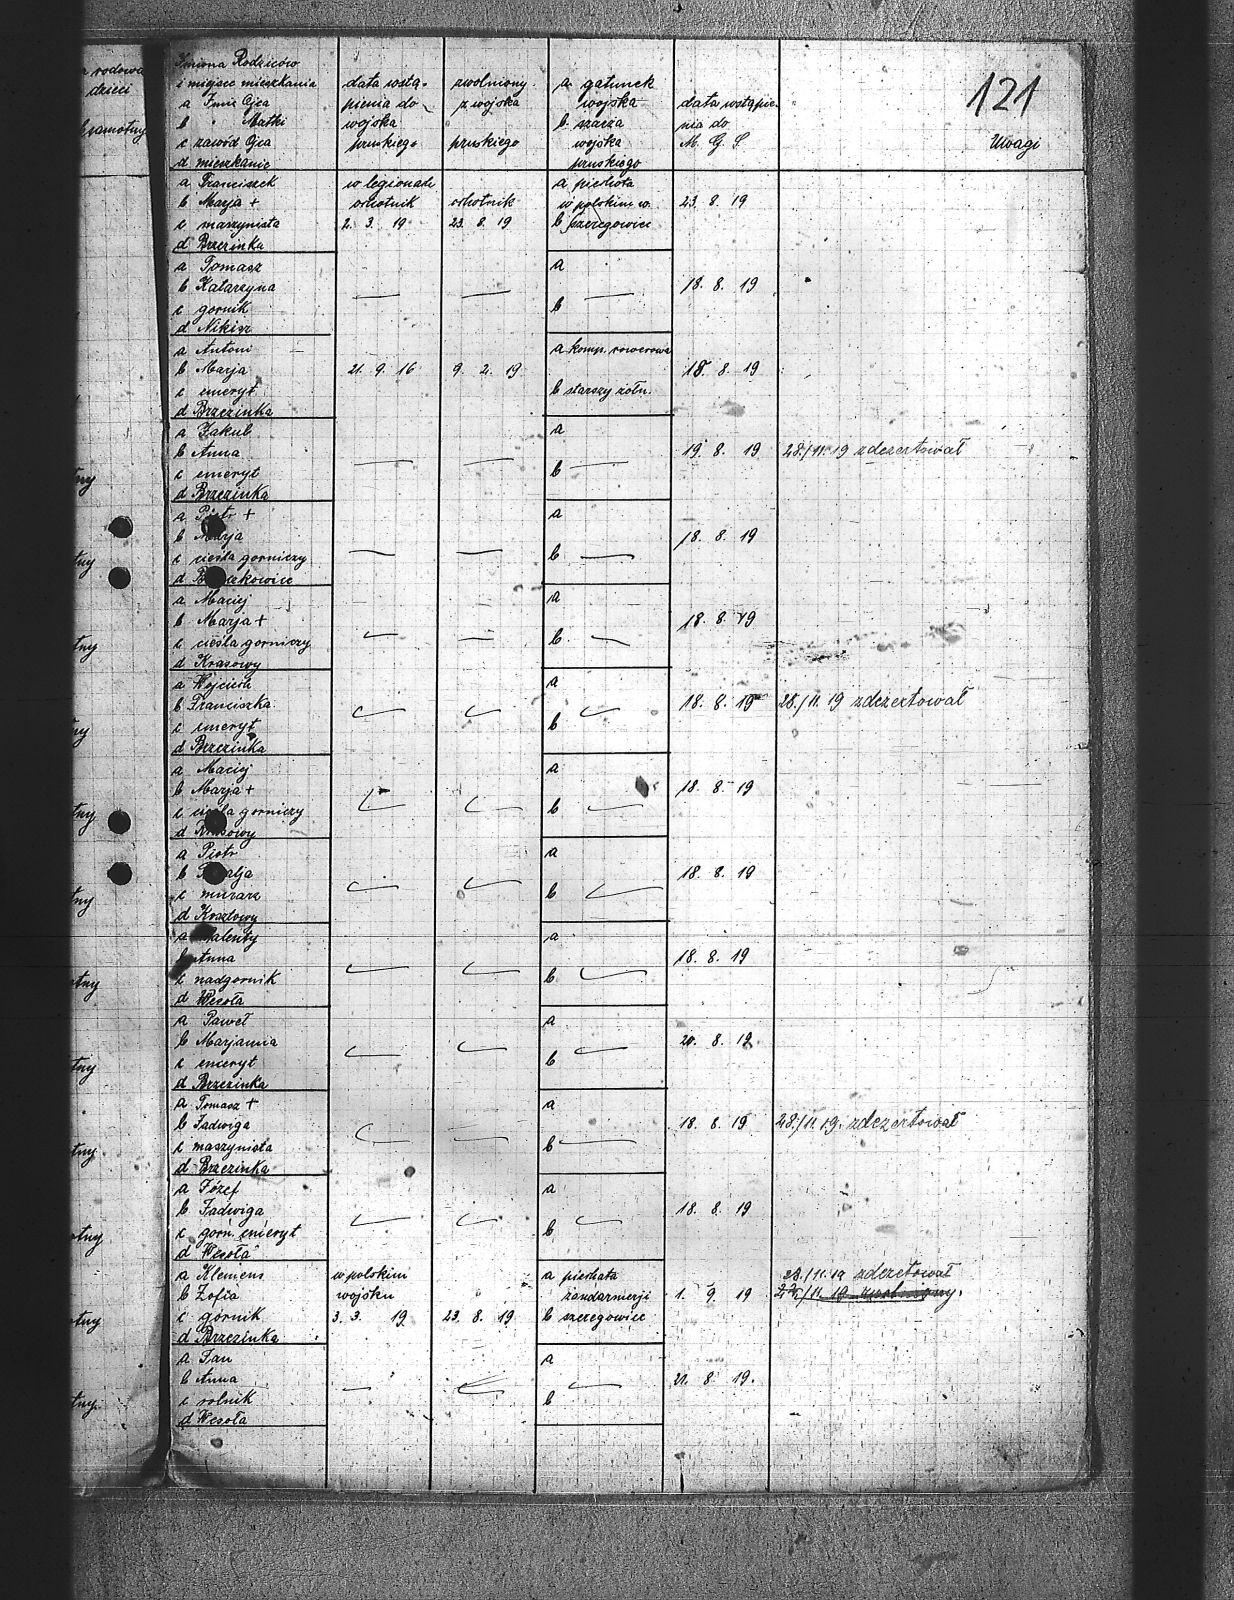 121
a rodowa
dzieci
gramotny
Imiona Rodziców
i miejsce mieszkania
a Imię Ojca
b " Matki
c zawód Ojca
d mieszkanie
data wstą-
pienia do
wojska
pruskiego
zwolniony
z wojska
pruskiego
a. gatunek
wojska
b. szarża
wojska
pruskiego
data wstąpie-
nia do
M. G. S
Uwagi
a Franciszek
b Marja +
c maszynista
d Brzezinka
w legionach
ochotnik
2. 3. 19
ochotnik
23. 8. 19
a piechota
w polskim w.
b szeregowiec
23. 8. 19
a Tomasz
b Katarzyna
c gornik
d Nikisz
a
b
18. 8. 19
a Antoni
b Marja
c emeryt
d Brzezinka
21. 9. 16
9. 2. 19
a komp. rowerowa
b starszy żołn.
18. 8. 19
a Jakub
b Anna
c emeryt
d Brzezinka
a
b
19. 8. 19
28./11. 19 zdezertował
a Piotr +
b Marja
c cieśla gorniczy
d
a
b
18. 8. 19
a Maciej
b Marja +
c cieśla gorniczy
d Krasowy
a
b
18. 8. 19
a Wojciech
b Franciszka
c emeryt
d Brzezinka
a
b
18. 8. 19
28./11. 19 zdezertował
a Maciej
b Marja +
c cieśla gorniczy
d Krasowy
a
b
18. 8. 19
a Piotr
b
c murarz
d Kosztowy
a
b
18. 8. 19
a Walenty
b Anna
c nadgornik
d Wesoła
a
b
18. 8. 19
a Paweł
b Marjanna
c emeryt
d Brzezinka
a
b
20. 8. 19
a Tomasz +
b Jadwiga
c maszynista
d Brzezinka
a
b
18. 8. 19
28./11. 19. zdezertował
a Józef
b Jadwiga
c gorn. emeryt
d Wesoła
a
b
18. 8. 19
a Klemens
b Zofia
c górnik
d Brzezinka
w polskim
wojsku
3. 3. 19
23. 8. 19
a piechata
żandarmerji
b szeregowiec
1. 9 19
28./11. 19 zdezertował
a Jan
b Anna
c rolnik
d Wesoła
a
b
21. 8. 19.